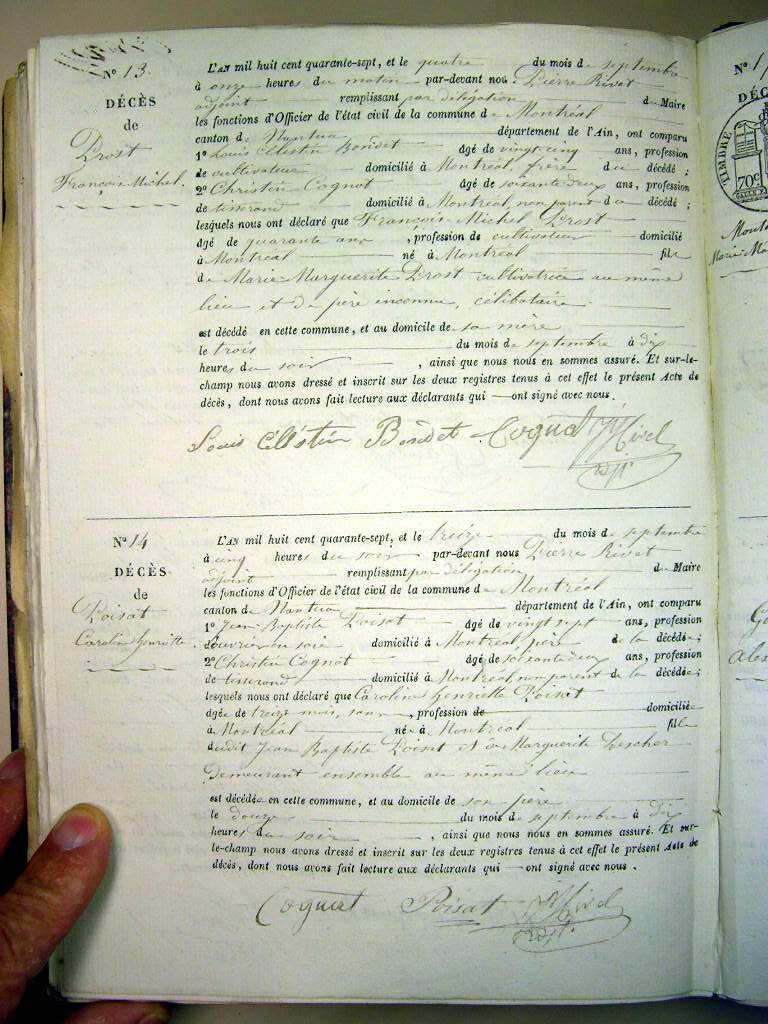 N° 13.
DÉCÈS
de
Prost
François Michel.
L'AN mil huit cent quarante-sept, et le quatre du mois de septembre
à onze heures du matin par-devant nous Pierre Rivet
adjoint remplissant par délégation du Maire
les fonctions d'Officier de l'état civil de la commune de Montréal
canton de Nantua département de l'Ain, ont comparu
1° Louis Célestin âgé de vingt-cinq ans, profession
de cultivateur domicilié à Montréal, frère du décédé ;
2° Christin Cognat âgé de soixante deux ans, profession
de tisserand domicilié à Montréal, non parent du décédé ;
lesquels nous ont déclaré que François Michel Prost
âgé de quarante ans , profession de cultivateur domicilié
à Montréal né à Montréal fils
de Marie Marguerite Prost cultivatrice au même
lieu et de père inconnu, célibataire.
est décédé en cette commune, et au domicile de sa mère
le trois du mois de septembre à dix
heures du soir , ainsi que nous nous en sommes assuré. Et sur-le-
champ nous avons dressé et inscrit sur les deux registres tenus à cet effet le présent Acte de
décès, dont nous avons fait lecture aux déclarants qui ont signé avec nous.
Louis Céléstin Cognat
adjt
N° 14
DÉCÈS
de
Poisat
Caroline henriette.
L'AN mil huit cent quarante-sept, et le treize du mois de septembre
à cinq heures du soir par-devant nous Pierre Rivet
adjoint remplissant par délégation du Maire
les fonctions d'Officier de l'état civil de la commune de Montréal
canton de Nantua département de l'Ain, ont comparu
1° Jean Baptiste Poisat âgé de vingt sept ans, profession
d'ouvrier en soie domicilié à Montréal, père de la décédée ;
2° Christin Cognat âgé de soixante deux ans, profession
de tisserand domicilié à Montréal non parent de la décédée ;
lesquels nous ont déclaré que Caroline henriette Poisat
âgée de treize mois, sans , profession de domiciliée
à Montréal née à Montréal fille
dudit Jean Baptiste Poisat et de Marguerite
demeurant ensemble au même lieu
est décédée en cette commune, et au domicile de son père
le douze du mois de septembre à dix
heures du soir , ainsi que nous nous en sommes assuré. Et sur-
le-champ nous avons dressé et inscrit sur les deux registres tenus à cet effet le présent Acte de
décès, dont nous avons fait lecture aux déclarants qui ont signé avec nous.
Cognat Poisat
adjt.
N° 1
DÉC
TIMBRE
70c